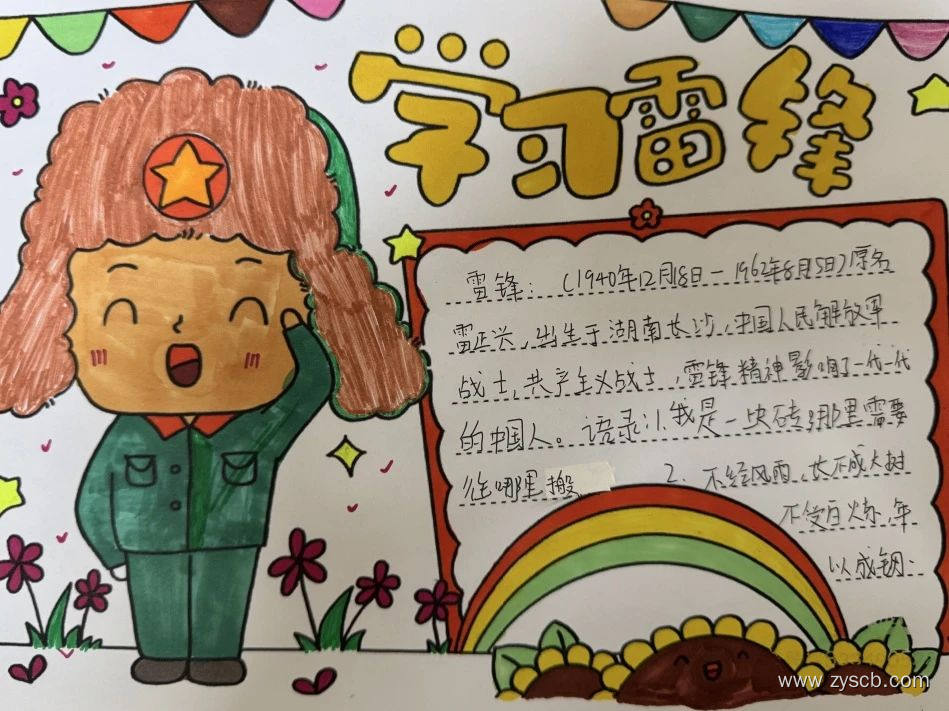 学习雷锋
雷锋：（1940年12月18日－1962年8月15日）原名
雷正兴，出生于湖南长沙，中国人民解放军
战士，共产主义战士，雷锋精神影响了一代一代
的中国人。语录：1.我是一块砖，哪里需要
往哪里搬
2．不经风雨，长不成大树
不受百炼，
以成钢．
www.zyscb.com